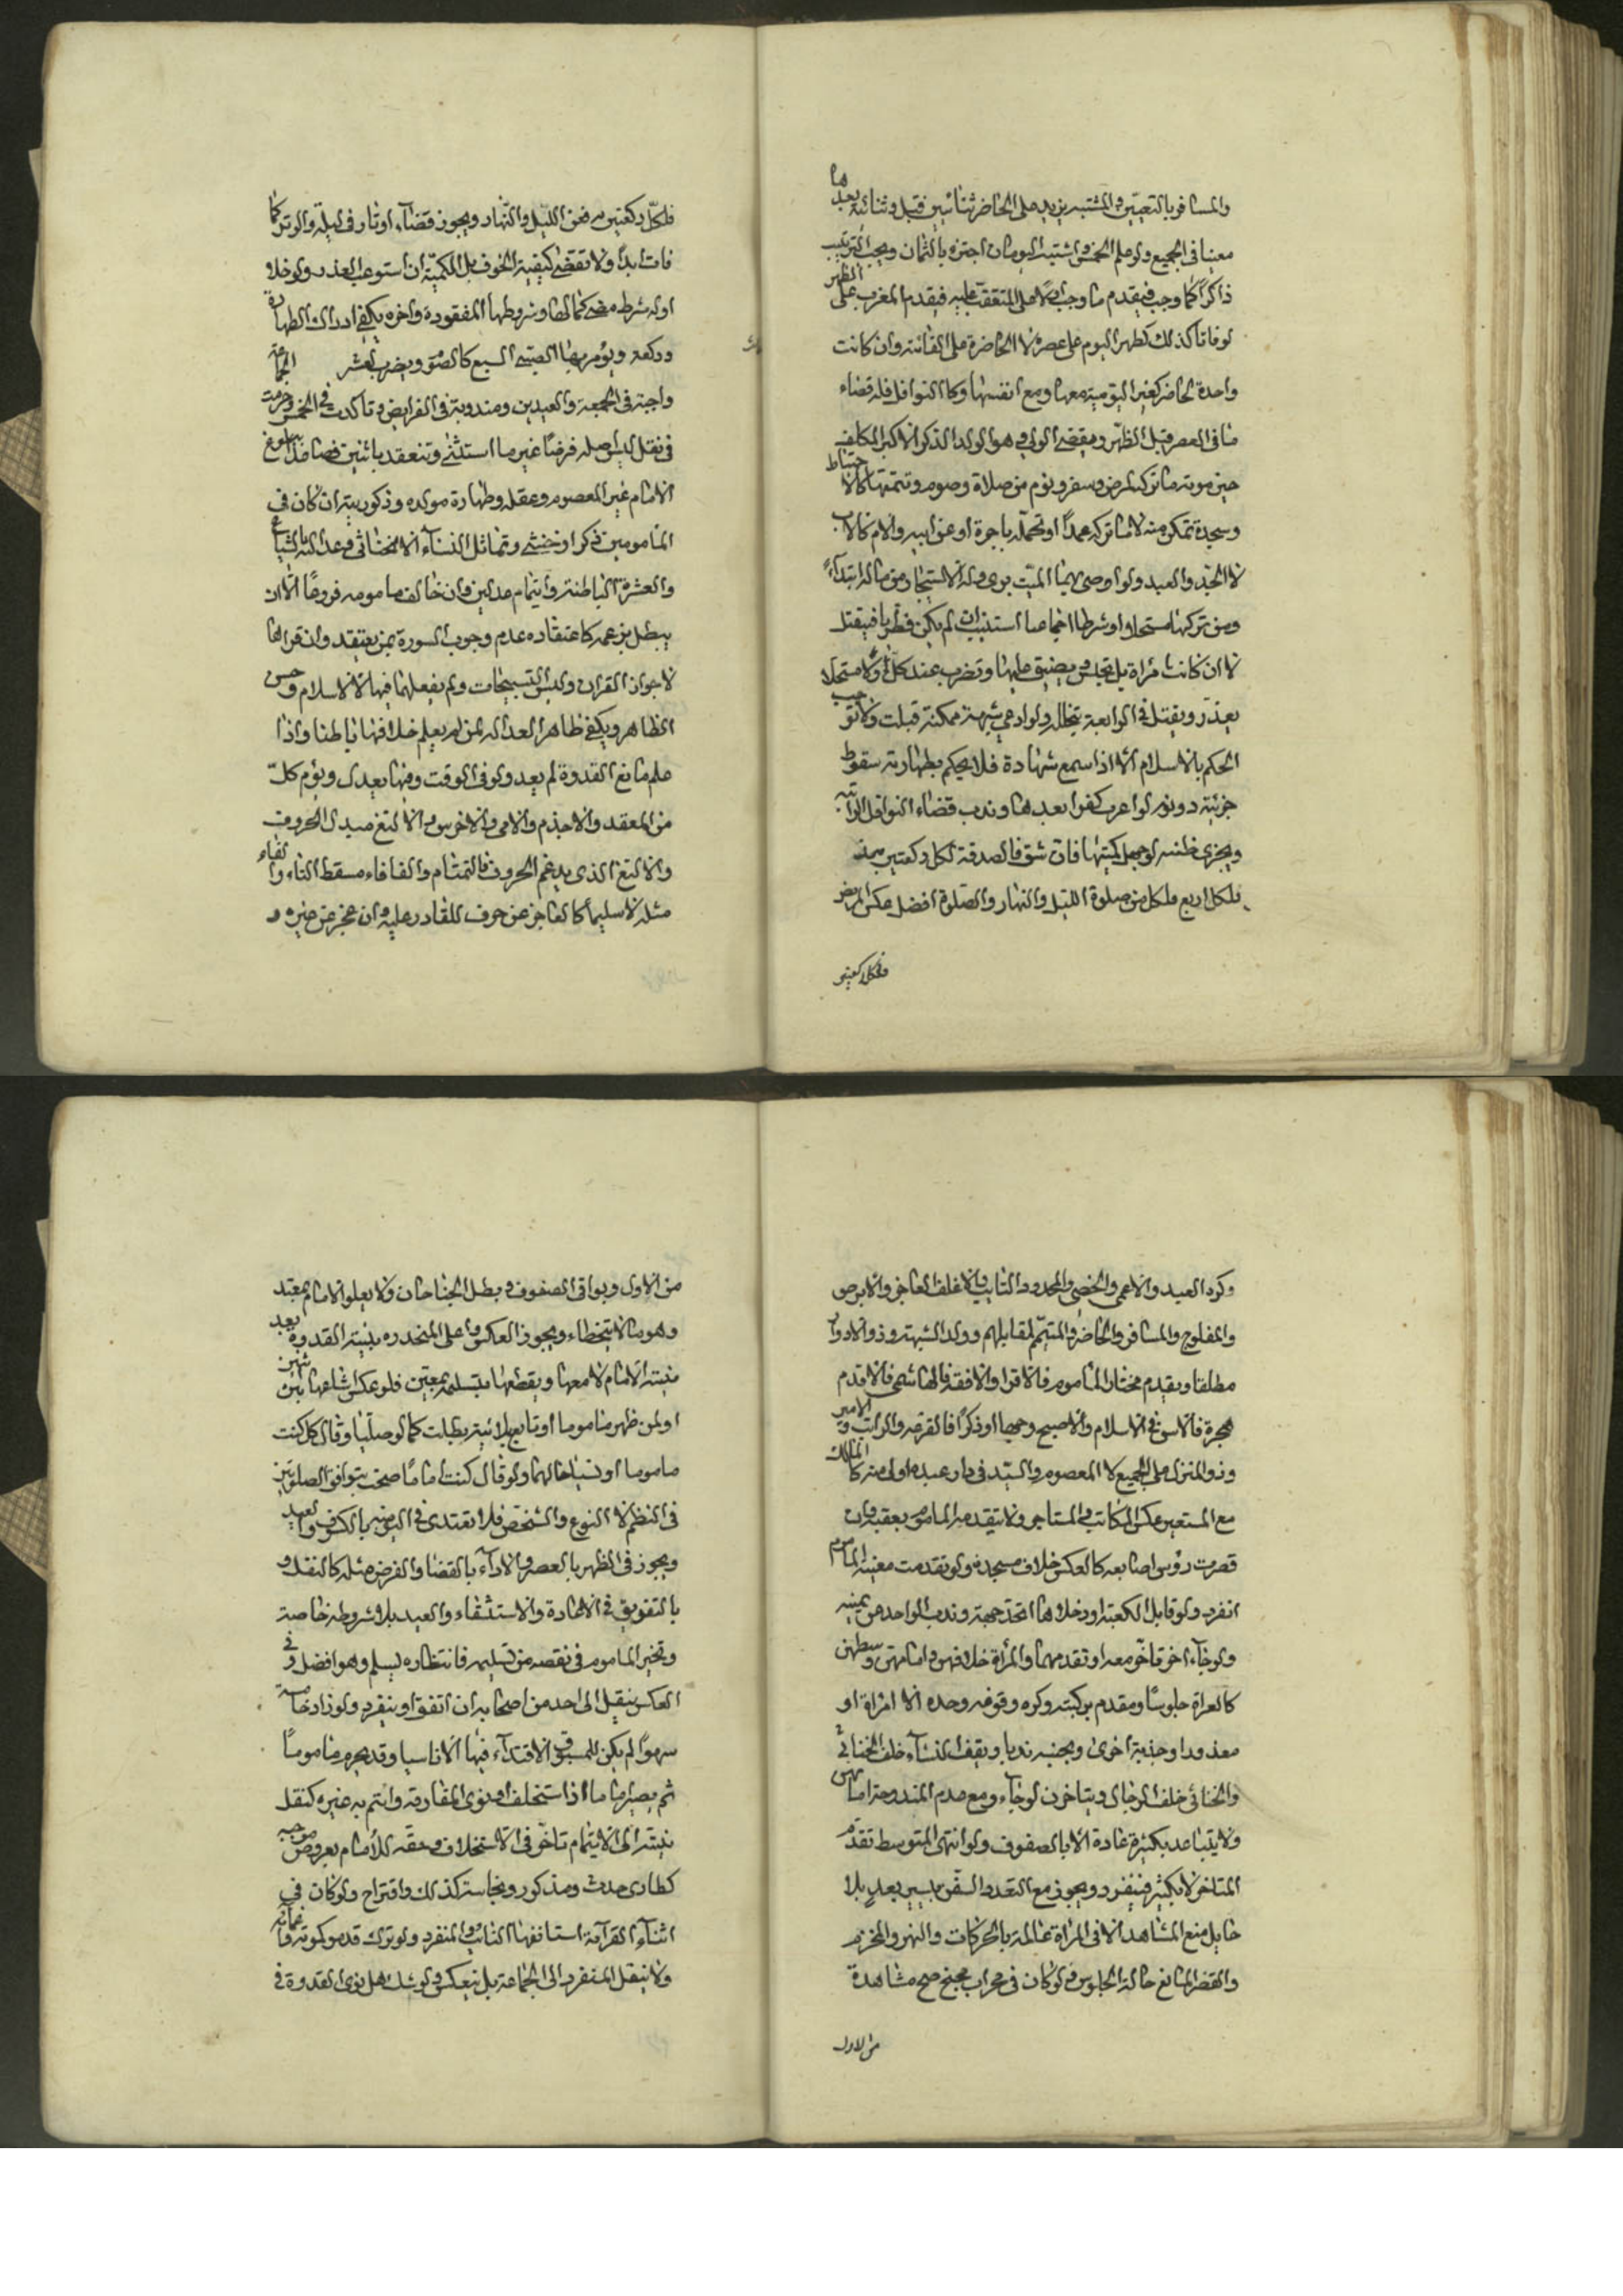 والمسافر بالتعيين والمشتبه يزيد على الحاضر ثنائيين قبل وثنائية بعدها
معينا في الجميع ولو علم الخمس واشتبه اليومان اجتزء بالثمان ويجب الترتيب
ذاكرا كما وجب فيقدم ما وجب اولا على المتعقب عليه فيقدم المغرب على الظهر
لو فاتا كذلك كظهر اليوم على عصره لا الحاضرة على الفائتة وان كانت
واحدة لحاضر كغير اليومية معها ومع انفسها وكالنوافل فله قضاء
منافي العصر قبل الظهر ويقضي الولي وهو الولد الذكر الاكبر المكلف
حين موته ما تركه لمرض وسفر ونوم من صلاة وصوم وتتمتها كالاحتياط
وسجدة تمكن منه لا ما تركه عمدا او تحمله باجرة او عن ابيه والام كالاب
لا الجد والعبد ولو اوصى بها الميت برى وله الاستيجار من ماله ابتداء
ومن تركها مستحلا او شرطا اجماعيا استتيب ان لم يكن فطريا فيقتل
لا ان كانت امرأة بل تحبس ويضيق عليها وتضرب عند كل صلاة ولا مستحلا
يعذر ويقتل في الرابعة بتخلله ولو ادعى شبهة ممكنة قبلت ولا توجب
الحكم بالاسلام الا اذا سمع شهادة فلا يحكم بطهارته سقوط
جزئية دونه لو اعرب كفرا بعدها وندب قضاء النوافل الراتبة
ويجزى ظنه لو جهل كميتها فان شق فالصدقة لكل ركعتين بمد
فلكل اربع فلكل من صلوة الليل والنهار والصلوة افضل عكس المريض
فلكل ركعتين
فلكل ركعتين مد فعن الليل والنهار ويجوز قضاء اوتار في ليلة والوتر كما
فات ابدا ولا تقضى كيفية الخوف بل الكمية ان استوعب العذر ولو خلا
اوله شرط مضى كمالها وشروطها المفقودة واخره يكفي ادراك الطهارة
وركعة ويؤمر بها الصبي السبع كالصوم ويضرب لعشر الجماعة
واجبة في الجمعة والعيدين ومندوبة في الفرايض وتاكدت في الخمس وحرمت
في نفل ليس اصله فرضا غير ما استثنى وتنعقد باثنين فصاعدا بلوغ
الامام غير المعصوم وعقله وطهارة مولده وذكوريته ان كان في
المأمومين ذكر او خنثى وتماثل النساء لا الخناثى وعدالته بالشياع
والعشرة الباطنة وايتمام عدلين وان خالف مامومه فروعا الا ان
يبطل بزعمه كاعتقاده عدم وجوب السورة بمن يعتقد وان قراها
لا جواز القران وليس التسبيحات ولم يفعلها فيها لا الاسلام وحسن
الظاهر ويكفي ظاهر العدالة لمن لم يعلم خلافها باطنا واذا
علم مانع القدوة لم يعد ولو في الوقت وفيها يعدل ويؤم كل
من المعقد والاجذم والامي والاخرس والالتغ مبدل الحروف
والالتغ الذي يدغم الحروف فالتمتام والفافاء مسقط التاء والفاء
مثله لا سليما كالعاجز عن حرف للقادر عليه وان عجز عن غيره و
وكره العبد والاعمى والخصي والمحدود التايب والاغلف العاجز والابرص
والمفلوج والمسافر والحاضر والمتيمم لمقابلهم وولد الشبهة وذو الادوار
مطلقا ويقدم مختار المأموم فالاقرا والافقه فالهاشمي فالاقدم
هجرة فالاسن في الاسلام والاصبح وجها او ذكرا فالقرعة والراتب والامير
وذو المنزل على الجميع لا المعصوم والسيد في دار عبده اولى منه كالمالك
مع المستعير عكس المكاتب والمستاجر ولا يتقدمه الماموم بعقبه وان
قصرت رؤس اصابعه كالعكس خلاف مسجده ولو تقدمت سفينة الماموم
انفرد ولو قابل الكعبة او دخلاها اتحد جهة وندب الواحد عن يمينه
ولو جاء اخر تاخر معه او تقدمهما والمرأة خلافهن وامامتهن وسطهن
كالعراة جلوسا ومقدم بركبته وكره وقوفه وحده الا امراة او
معذورا وجذبه اخرى ويجنبه ندبا ويقف النساء خلف الخناثى
والخناثى خلف الرجال ويتاخرن لو جاء ومع عدم المندوحة امامهن
ولا يتباعد بكثير عادة الا بالصفوف ولو انتهى المتوسط تقدم
المتاخر لا بكثير فينفرد ويجوز مع التعدد السفن بيسير بعد بلا
حايل منع المشاهد الا في المراة عالمة بالحركات والنهر والمخرم
والقصر المانع حالة الجلوس ولو كان في محراب مجنح صح مشاهدة
من الاول
من الاول وبواقي الصفوف وبطل الجناحان ولا يعلو الامام بمعتد
وهو ما لا يتخطاه ويجوز العكس وعلى المنحدرة بنية القدوة بعد
نية الامام لا معها ويقطعها بتسليمة بمعين فلو عكس اشاعها بين
او لمن ظهر ماموما او تابع بلا نية بطلت كما لو صليا وقال كل كنت
ماموما او نسيا حالهما ولو قال كنت اماما صحت بتوافق الصلوتين
في النظم لا النوع والشخص فلا يقتدى في اليومية بالكسوف والعيد
ويجوز في الظهر بالعصر والاداء بالقضا والفرض مثله كالنفل و
بالتفويق في الاعادة والاستسقاء والعيد بلا شروطه خاصة
وتخير الماموم في نقصه من تسليمه فانتظاره يسلم وهو افضل وفي
العكس ينقل الى احد من اصحابه ان اتفق او ينفرد ولو زاد خامسة
سهوا لم يكن للمسبوق الاقتداء فيها الا ناسيا وقد يحرم ماموما
ثم يصير اماما اذا استخلف او نوى المفارقة وائتم به غيره كنقل
نيته الى الايتمام تاخر في الاستخلاف وحقه للامام بعروض موجبه
كطارى حدث ومذكور ونجاسة كذلك واقتراح ولو كان في
اثناء القراءة استانفها النايب والمنفرد ولو ترك قدموكموته واغمائه
ولا ينقل المنفرد الى الجماعة بل ينعكس ولو شك هل نوى القدوة في